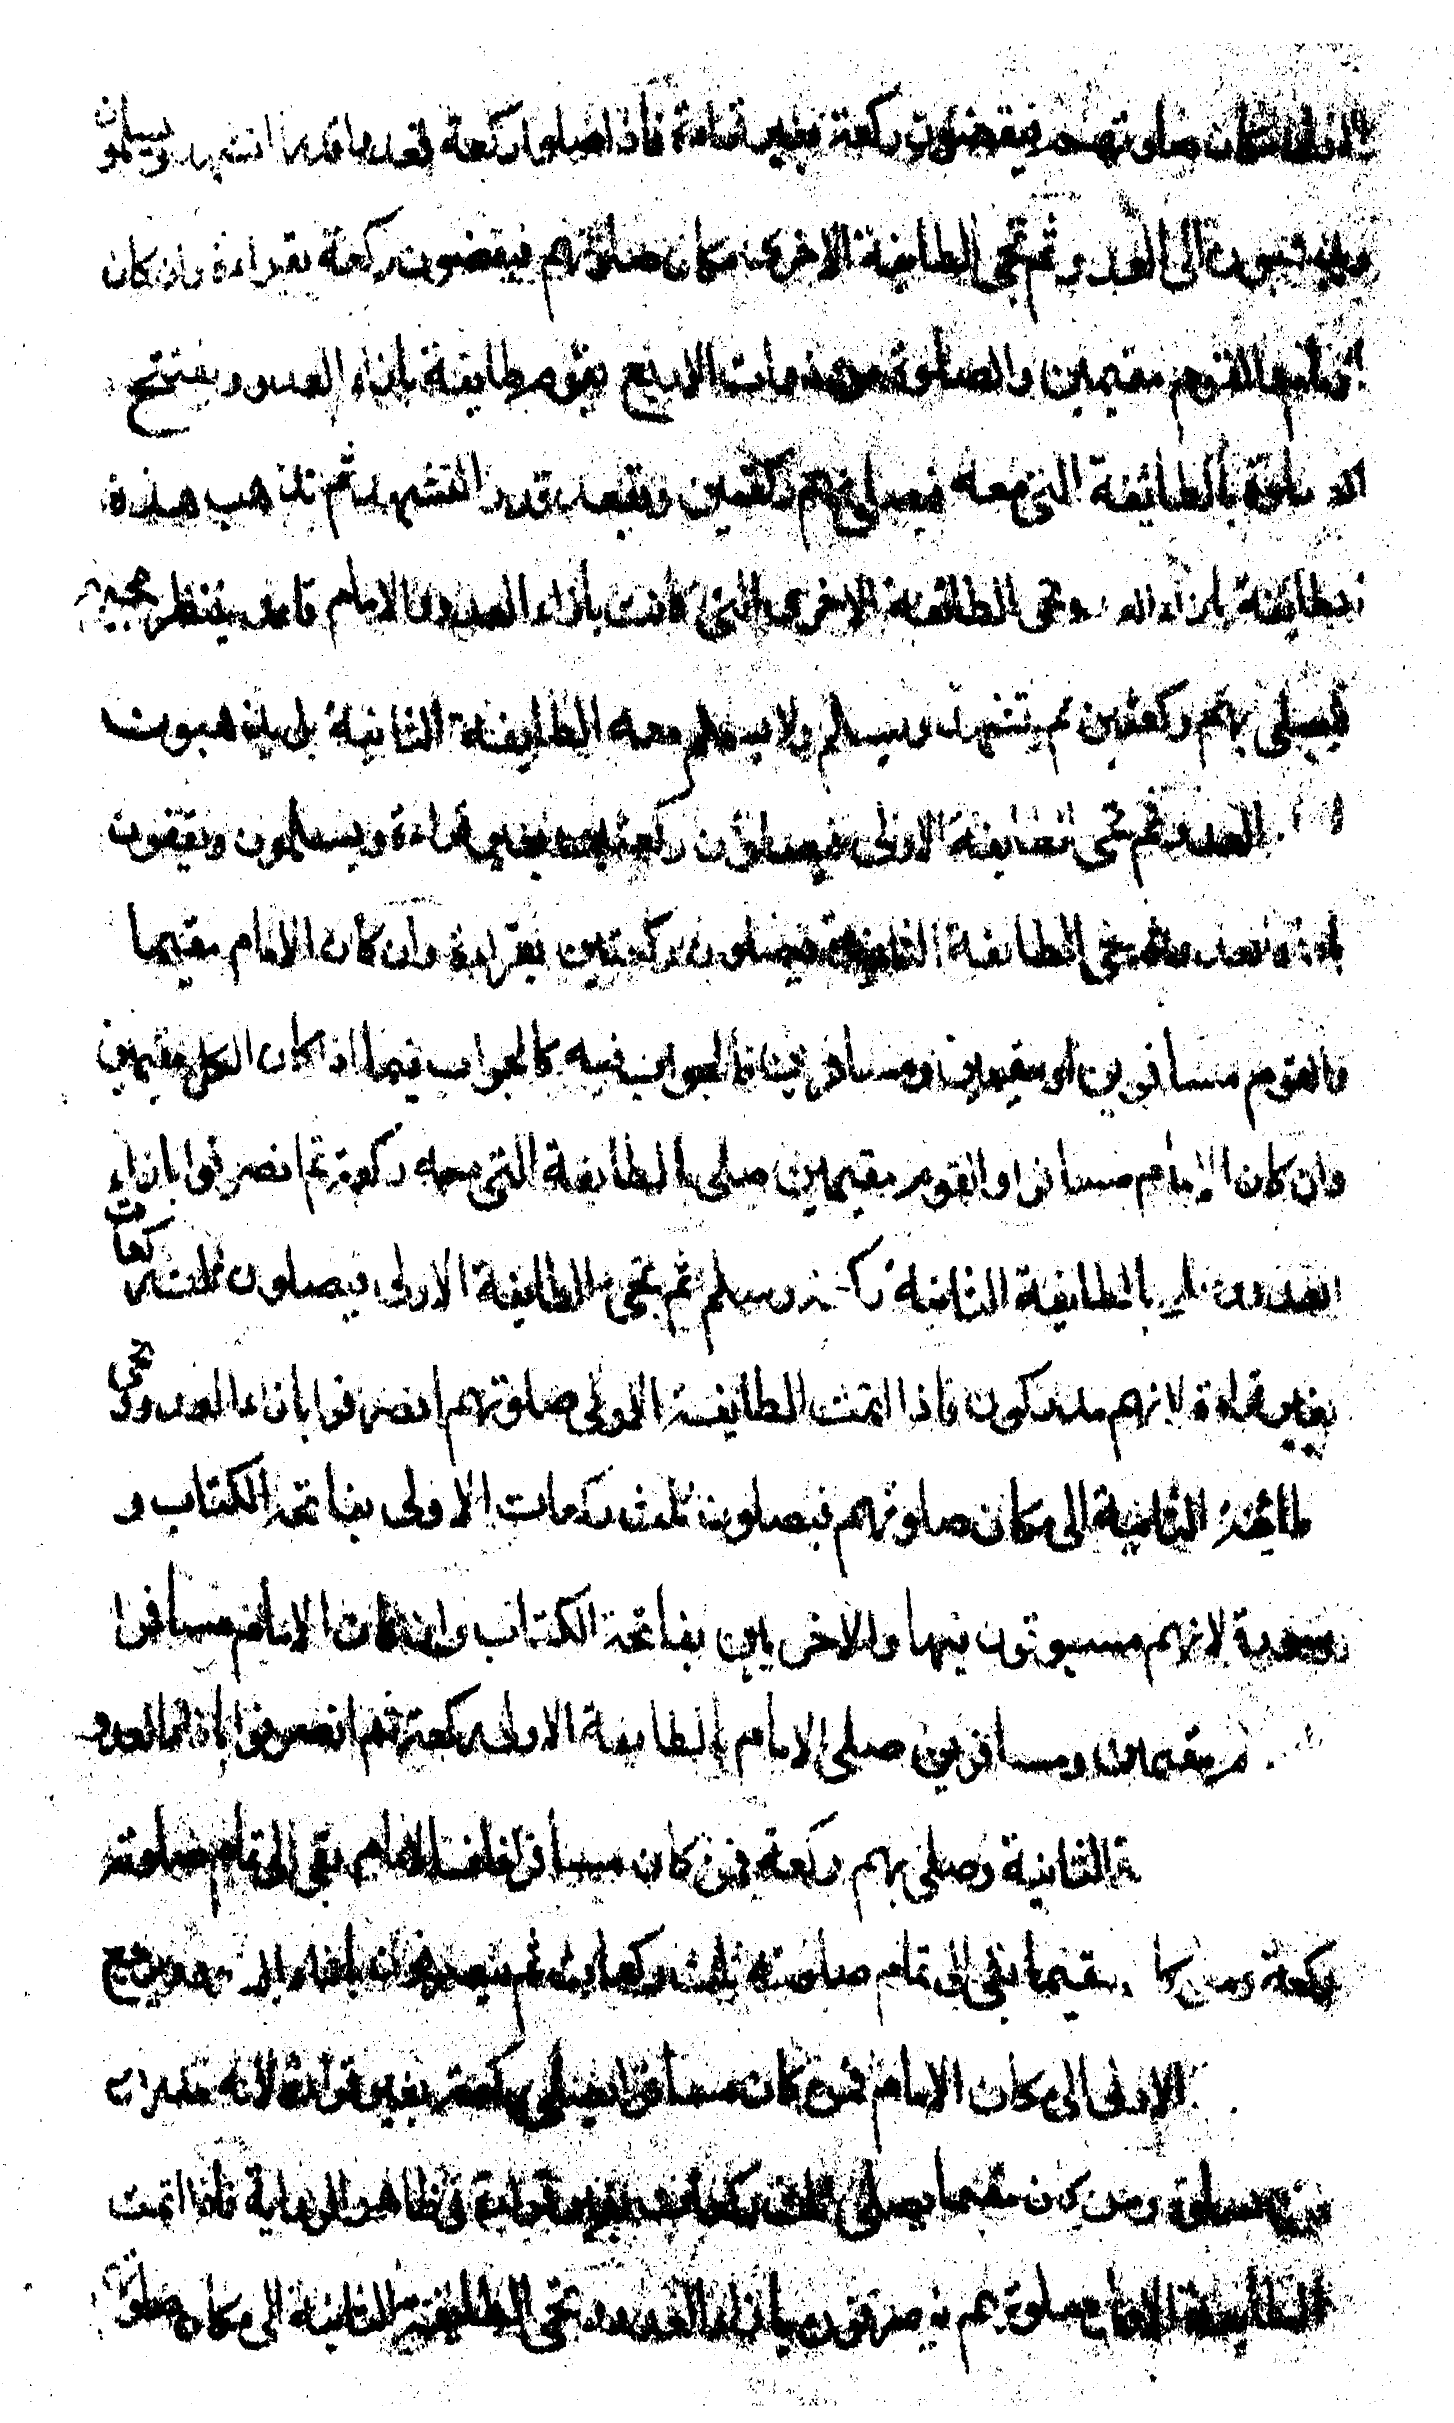 الاولى مكان صلوتهم فيقضون ركعة بغير قراءة فاذا صلوا ركعة قعدوا قدر التشهد ويسلمون
ويذهبون الى العدو ثم تجئ الطايفة الاخرى مكان صلوتهم فيقضون ركعة بقراءة وان كان
الامام والقوم مقيمين والصلوة من ذوات الاربع يقوم طايفة بازاء العدو ويفتتح
الصلوة بالطائفة التي معه فيصلي بهم ركعتين ويقعد قدر التشهد ثم تذهب هذه
الطايفة بازاء العدو وتجئ الطائفة الاخرى التي كانت بازاء العدو والامام قاعد ينتظر مجيئهم
فيصلي بهم ركعتين ثم يتشهد ويسلم ولا يسلم معه الطايفة الثانية بل يذهبون
الى العدو ثم تجئ الطايفة الاولى فيصلون ركعتين بغير قراءة ويسلمون ويقفون
بازاء العدو ثم تجئ الطايفة الثانية فيصلون ركعتين بقراءة وان كان الامام مقيما
والقوم مسافرين او مقيمين ومسافرين فالجواب فيه كالجواب فيما اذا كان الكل مقيمين
وان كان الامام مسافرا والقوم مقيمين صلى بالطايفة التي معه ركعة ثم انصرفوا بازاء
العدو وصلى بالطايفة الثانية ركعة وسلم ثم تجئ الطايفة الاولى فيصلون ثلث ركعات
بغير قراءة لانهم مدركون فاذا اتمت الطايفة الاولى صلوتهم انصرفوا بازاء العدو وتجئ
الطائفة الثانية الى مكان صلوتهم فيصلون ثلث ركعات الاولى بفاتحة الكتاب و
وسورة لانهم مسبوقون فيها والاخريين بفاتحة الكتاب وان كان الامام مسافرا
مقيمين ومسافرين صلى الامام بالطايفة الاولى ركعة ثم انصرفوا بازاء العدو
الثانية وصلى بهم ركعة فمن كان مسافرا خلف الامام بقي الى تمام صلوته
ركعة ومن كان مقيما بقي الى تمام صلوته ثلث ركعات ثم ينصرفون بازاء العدو ويرجع
الاولى الى مكان الامام فمن كان مسافرا يصلي ركعة بغير قراءة لانه مدرك
صلوته ومن كان مقيما يصلي ثلث ركعات بغير قراءة في ظاهر الرواية فاذا اتمت
الطايفة الاولى صلوتهم ينصرفون بازاء العدو وتجئ الطايفة الثانية الى مكان صلوتهم